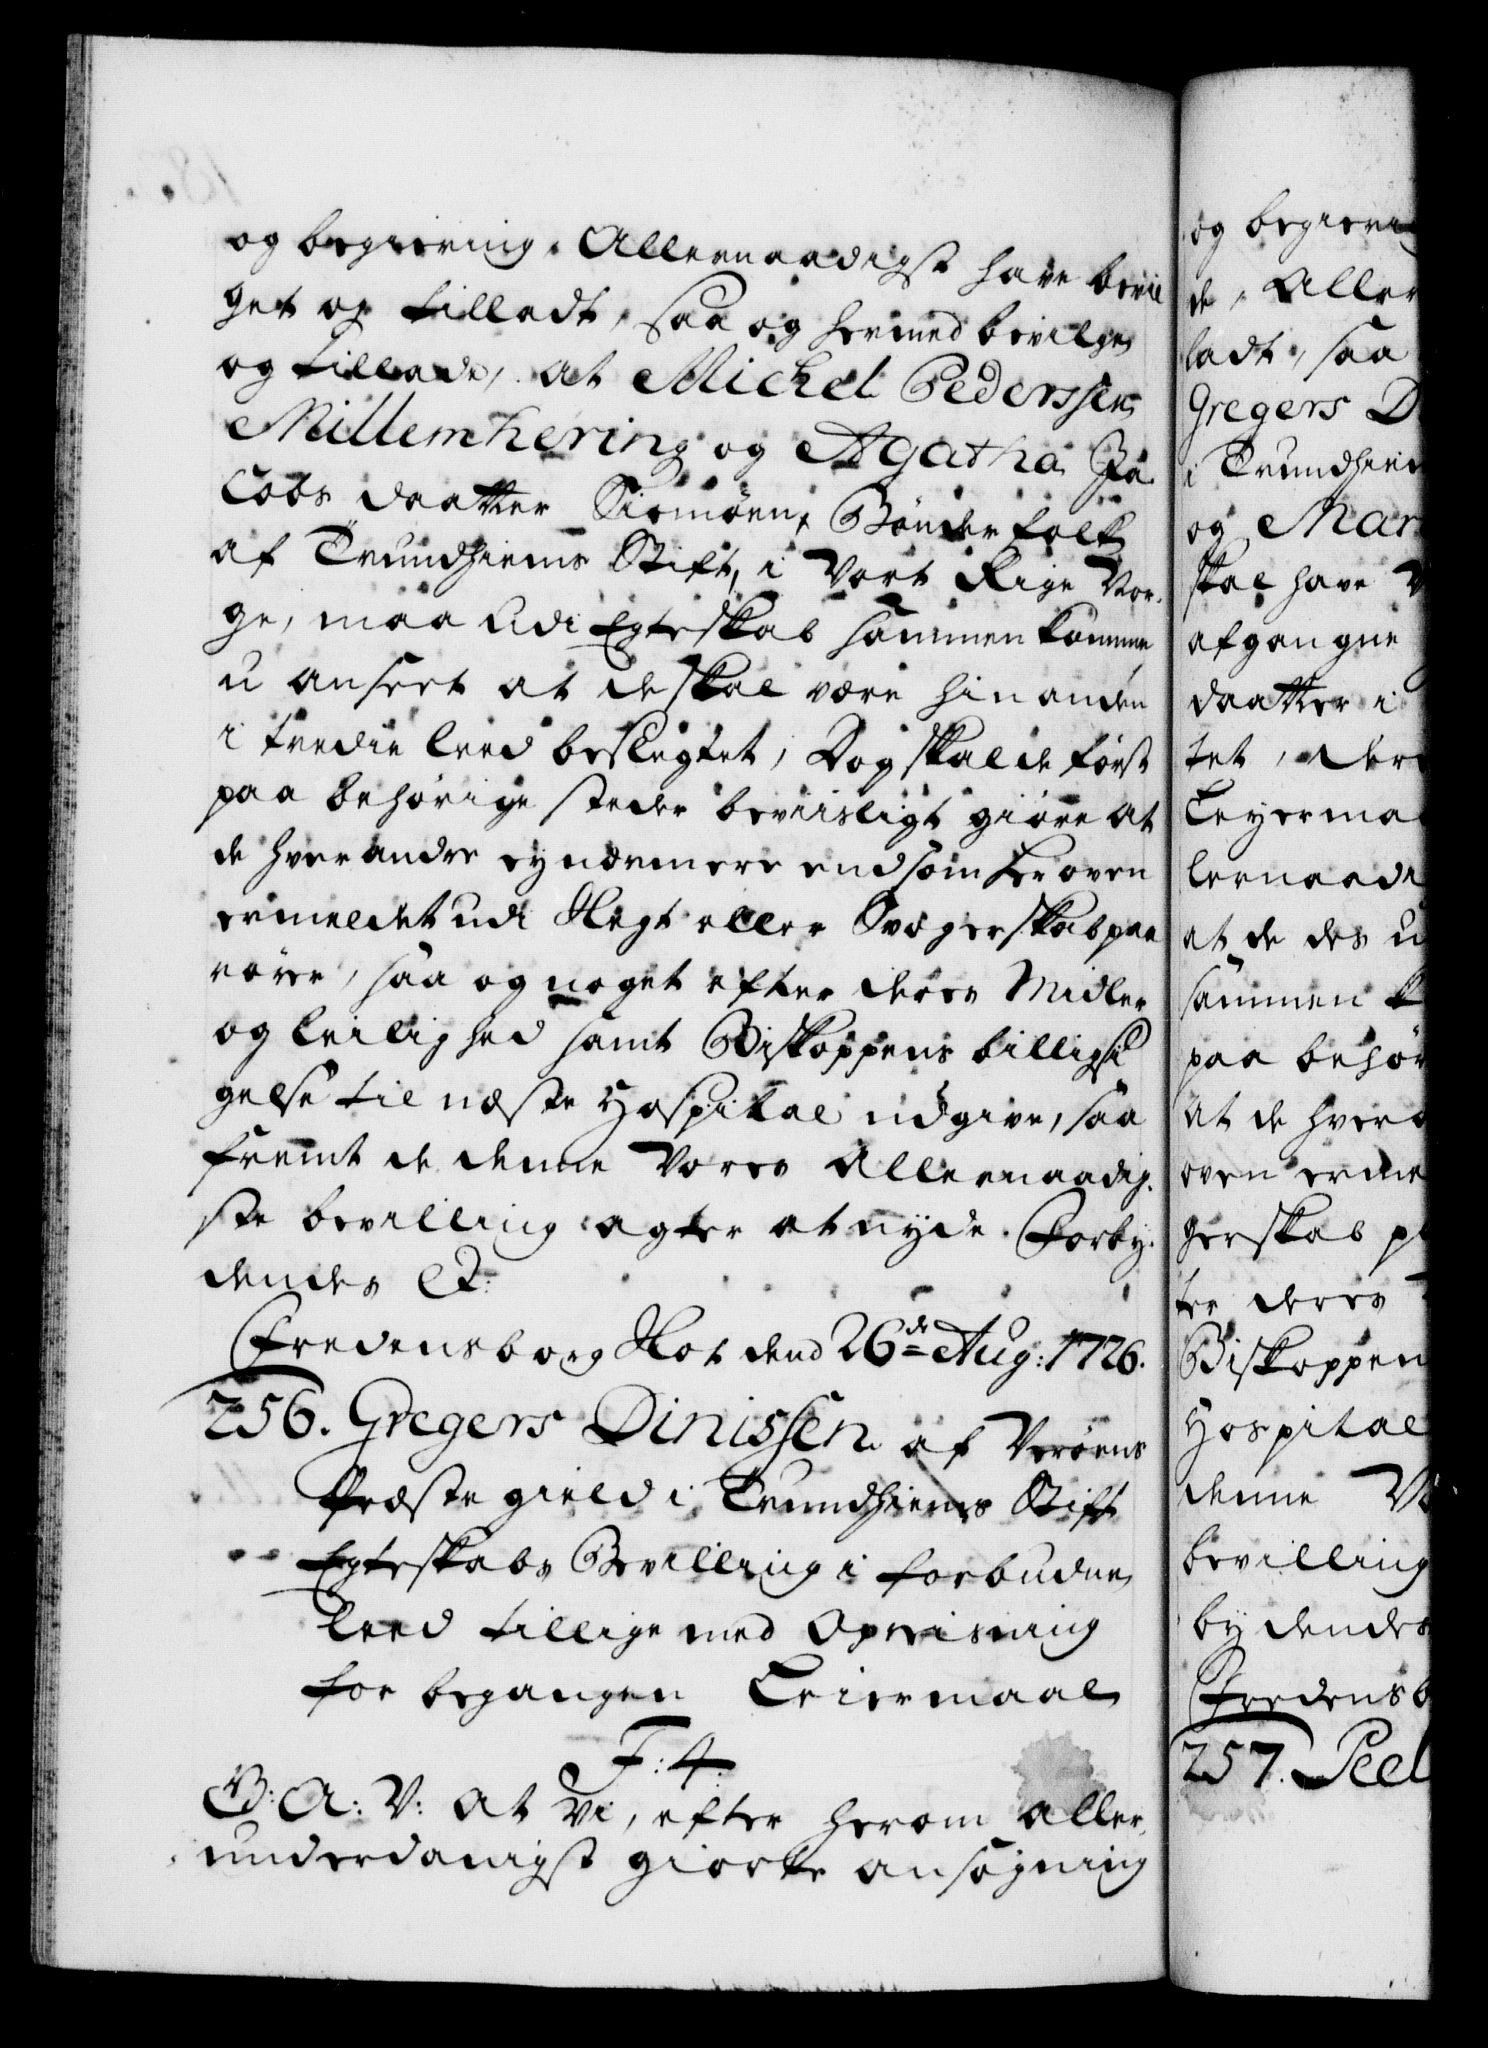 og begiering, Allernaadigst have bevil
get og tilladt, saa og hermed bevilge
og tillade, at Michel Pederssen
Millemhering og Agatha Ja
cobs daatter Siemöen, Bönder folk
af Trundhiems Stift, i Vort Rige Nor,
ge, maa udi Egteskab sammen komme
u anseet at de skal være hin anden
i tredie leed beslegtet, Dog skal de först
paa behörige steder beviisligt giöre at
de hver andre ey nærmere end som her oven
ermeldet udi Slegt eller Svogerskab paa
rörer, saa og noget efter deres Midler
og leilighed samt Biskoppens billigsi
gelse til næste Hospital udgive, saa
fremt de denne Vores Allernaadig,
ste bevilling agter at nyde. Forby,
dendes Et:
Fredensborg Slot dend 26de Aug: 1726.
256. Gregers Dinissen af Veröens
Præste gield i Trundhiems Stift
Egteskabs Bevilling i forbudne
leed tillige med Opreisning
for begangen Leiermaal
F: 4.
G: A: V: at Vi, efter herom aller,
underdanigst giorte ansögning
og begieri
de, Aller
ladt, saa
Gregers D
i Trundhie
og Mar
skal have
afgangne
daatter i
tet, der
Leyerma
lernaadi
at de des u
sammen k
paa behör
at de hver
oven erme
gerskab p
ter deres
Biskoppen
Hospital
denne V
bevilling
by dendes
Fredensb
257. Peel